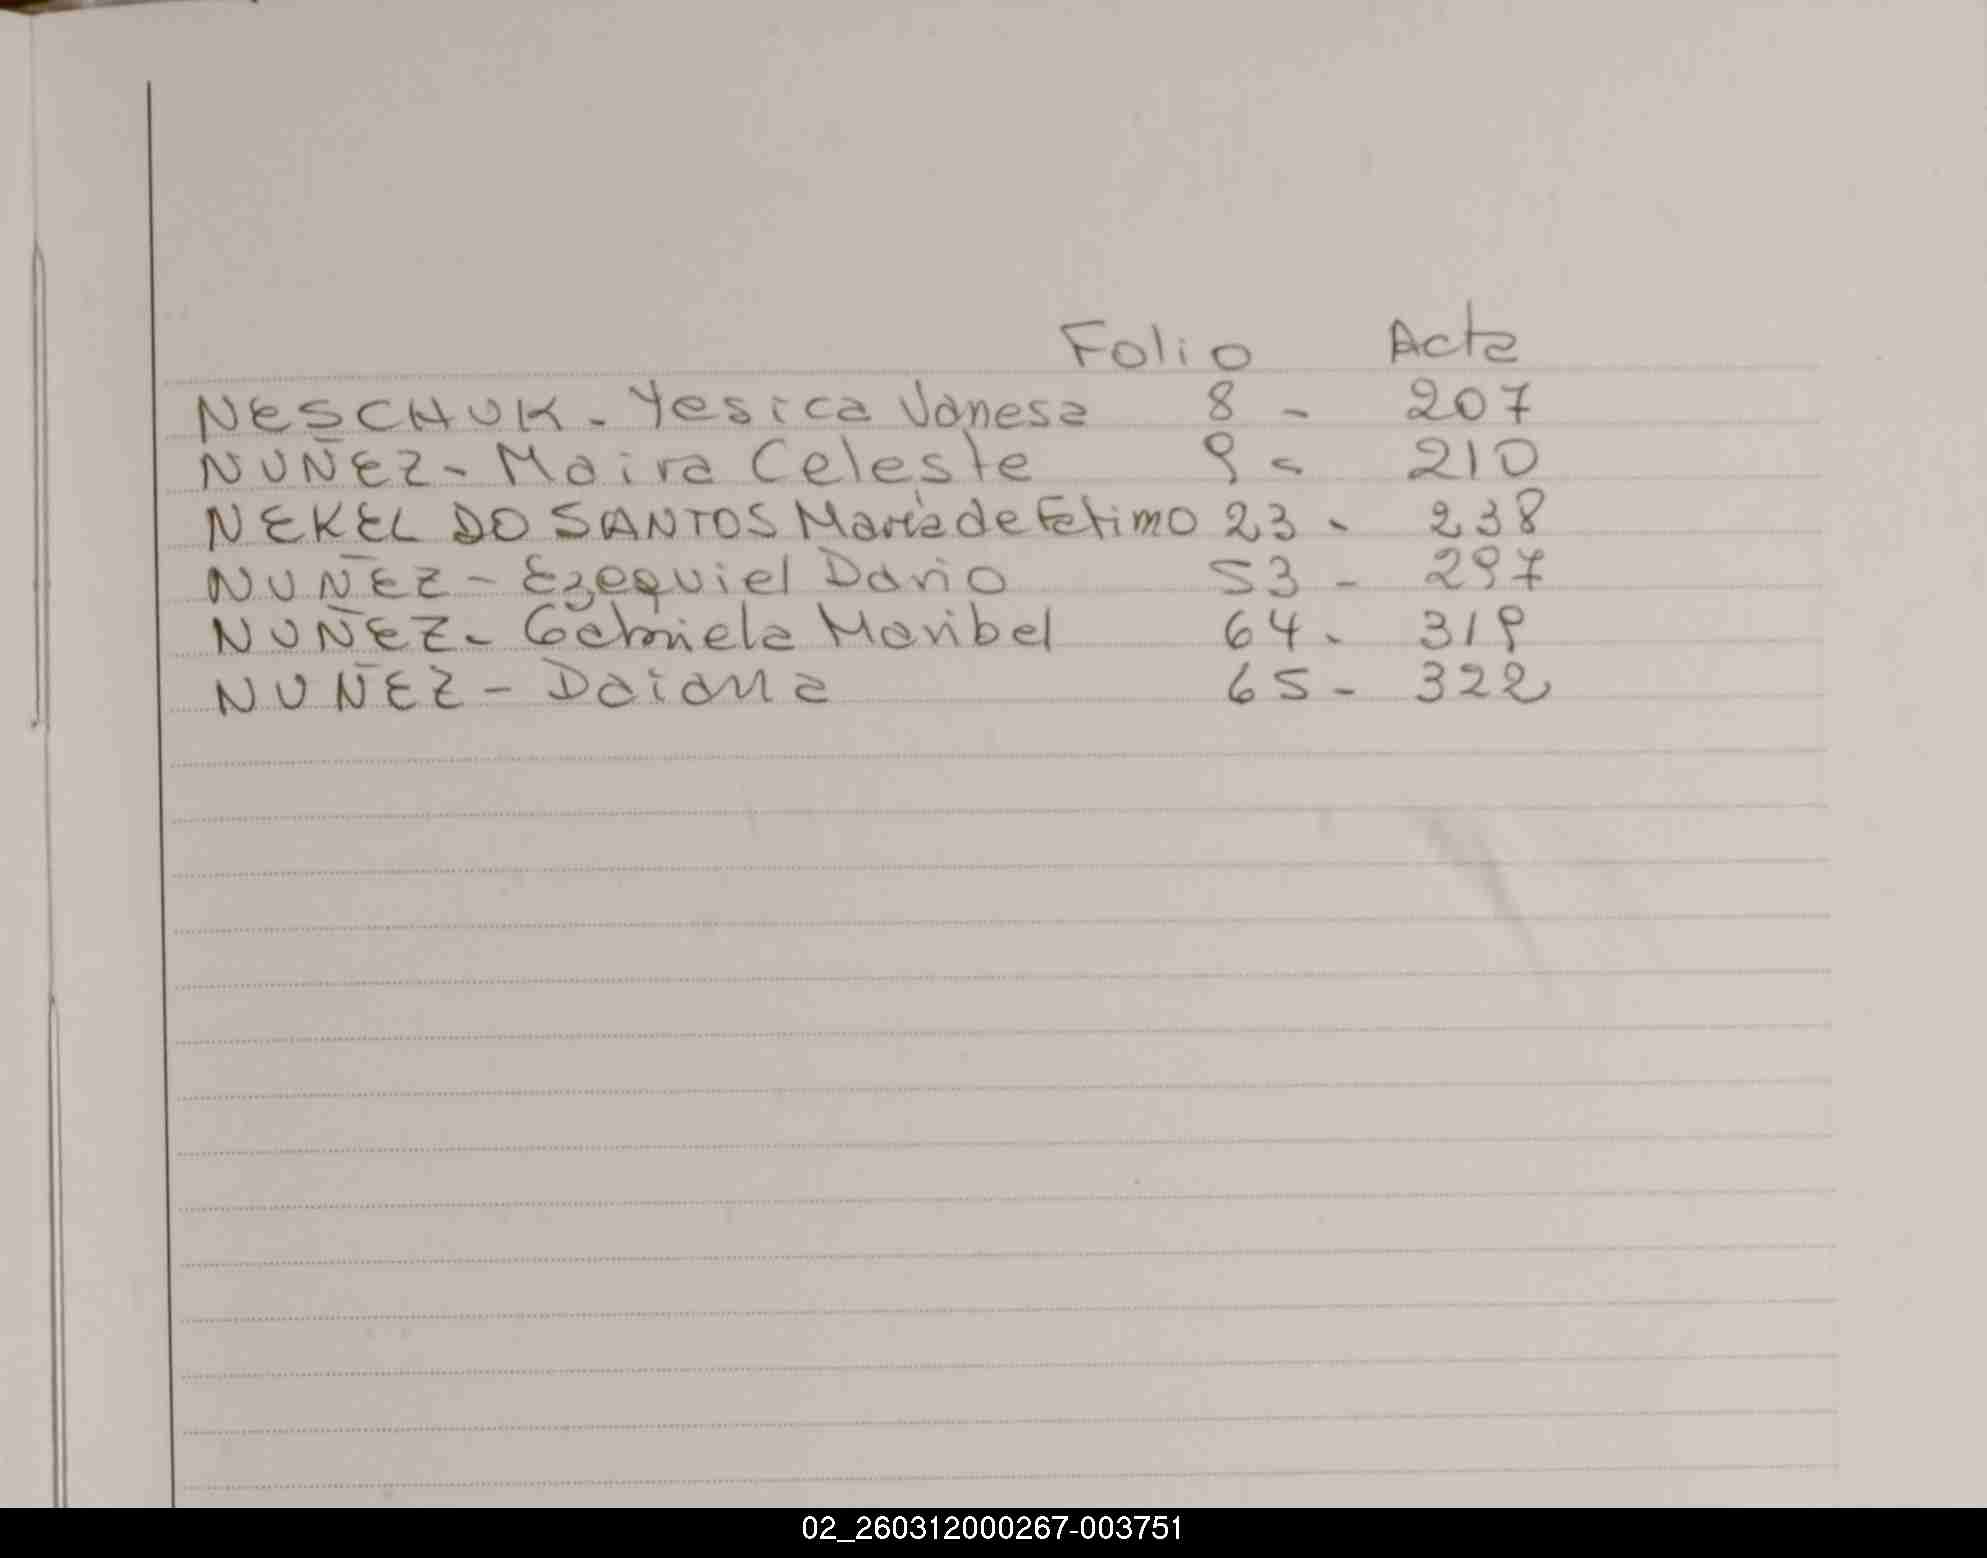 Folio Acta
NESCHUK - Yesica Vanesa 8 - 207
NUÑEZ - Maira Celeste 9 - 210
NEKEL DO SANTOS María de Fatima 23 - 238
NUÑEZ - Ezequiel Dario 53 - 297
NUÑEZ - Gabriela Maribel 64 - 319
NUÑEZ - Daiana 65 - 322
02_260312000267-003751